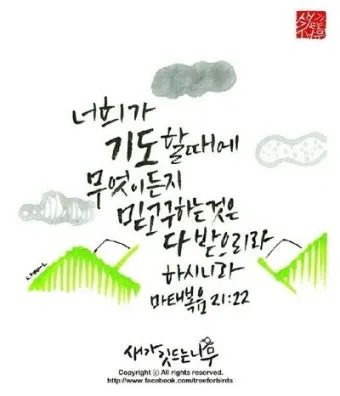 너희가
기도할때에
무엇이든지
믿고구하는것은
다 받으리라
하시니라
마태복음 21:22
새가깃드는나무
Copyright ⓒ All rights reserved.
http://www.facebook.com/treeforbirds